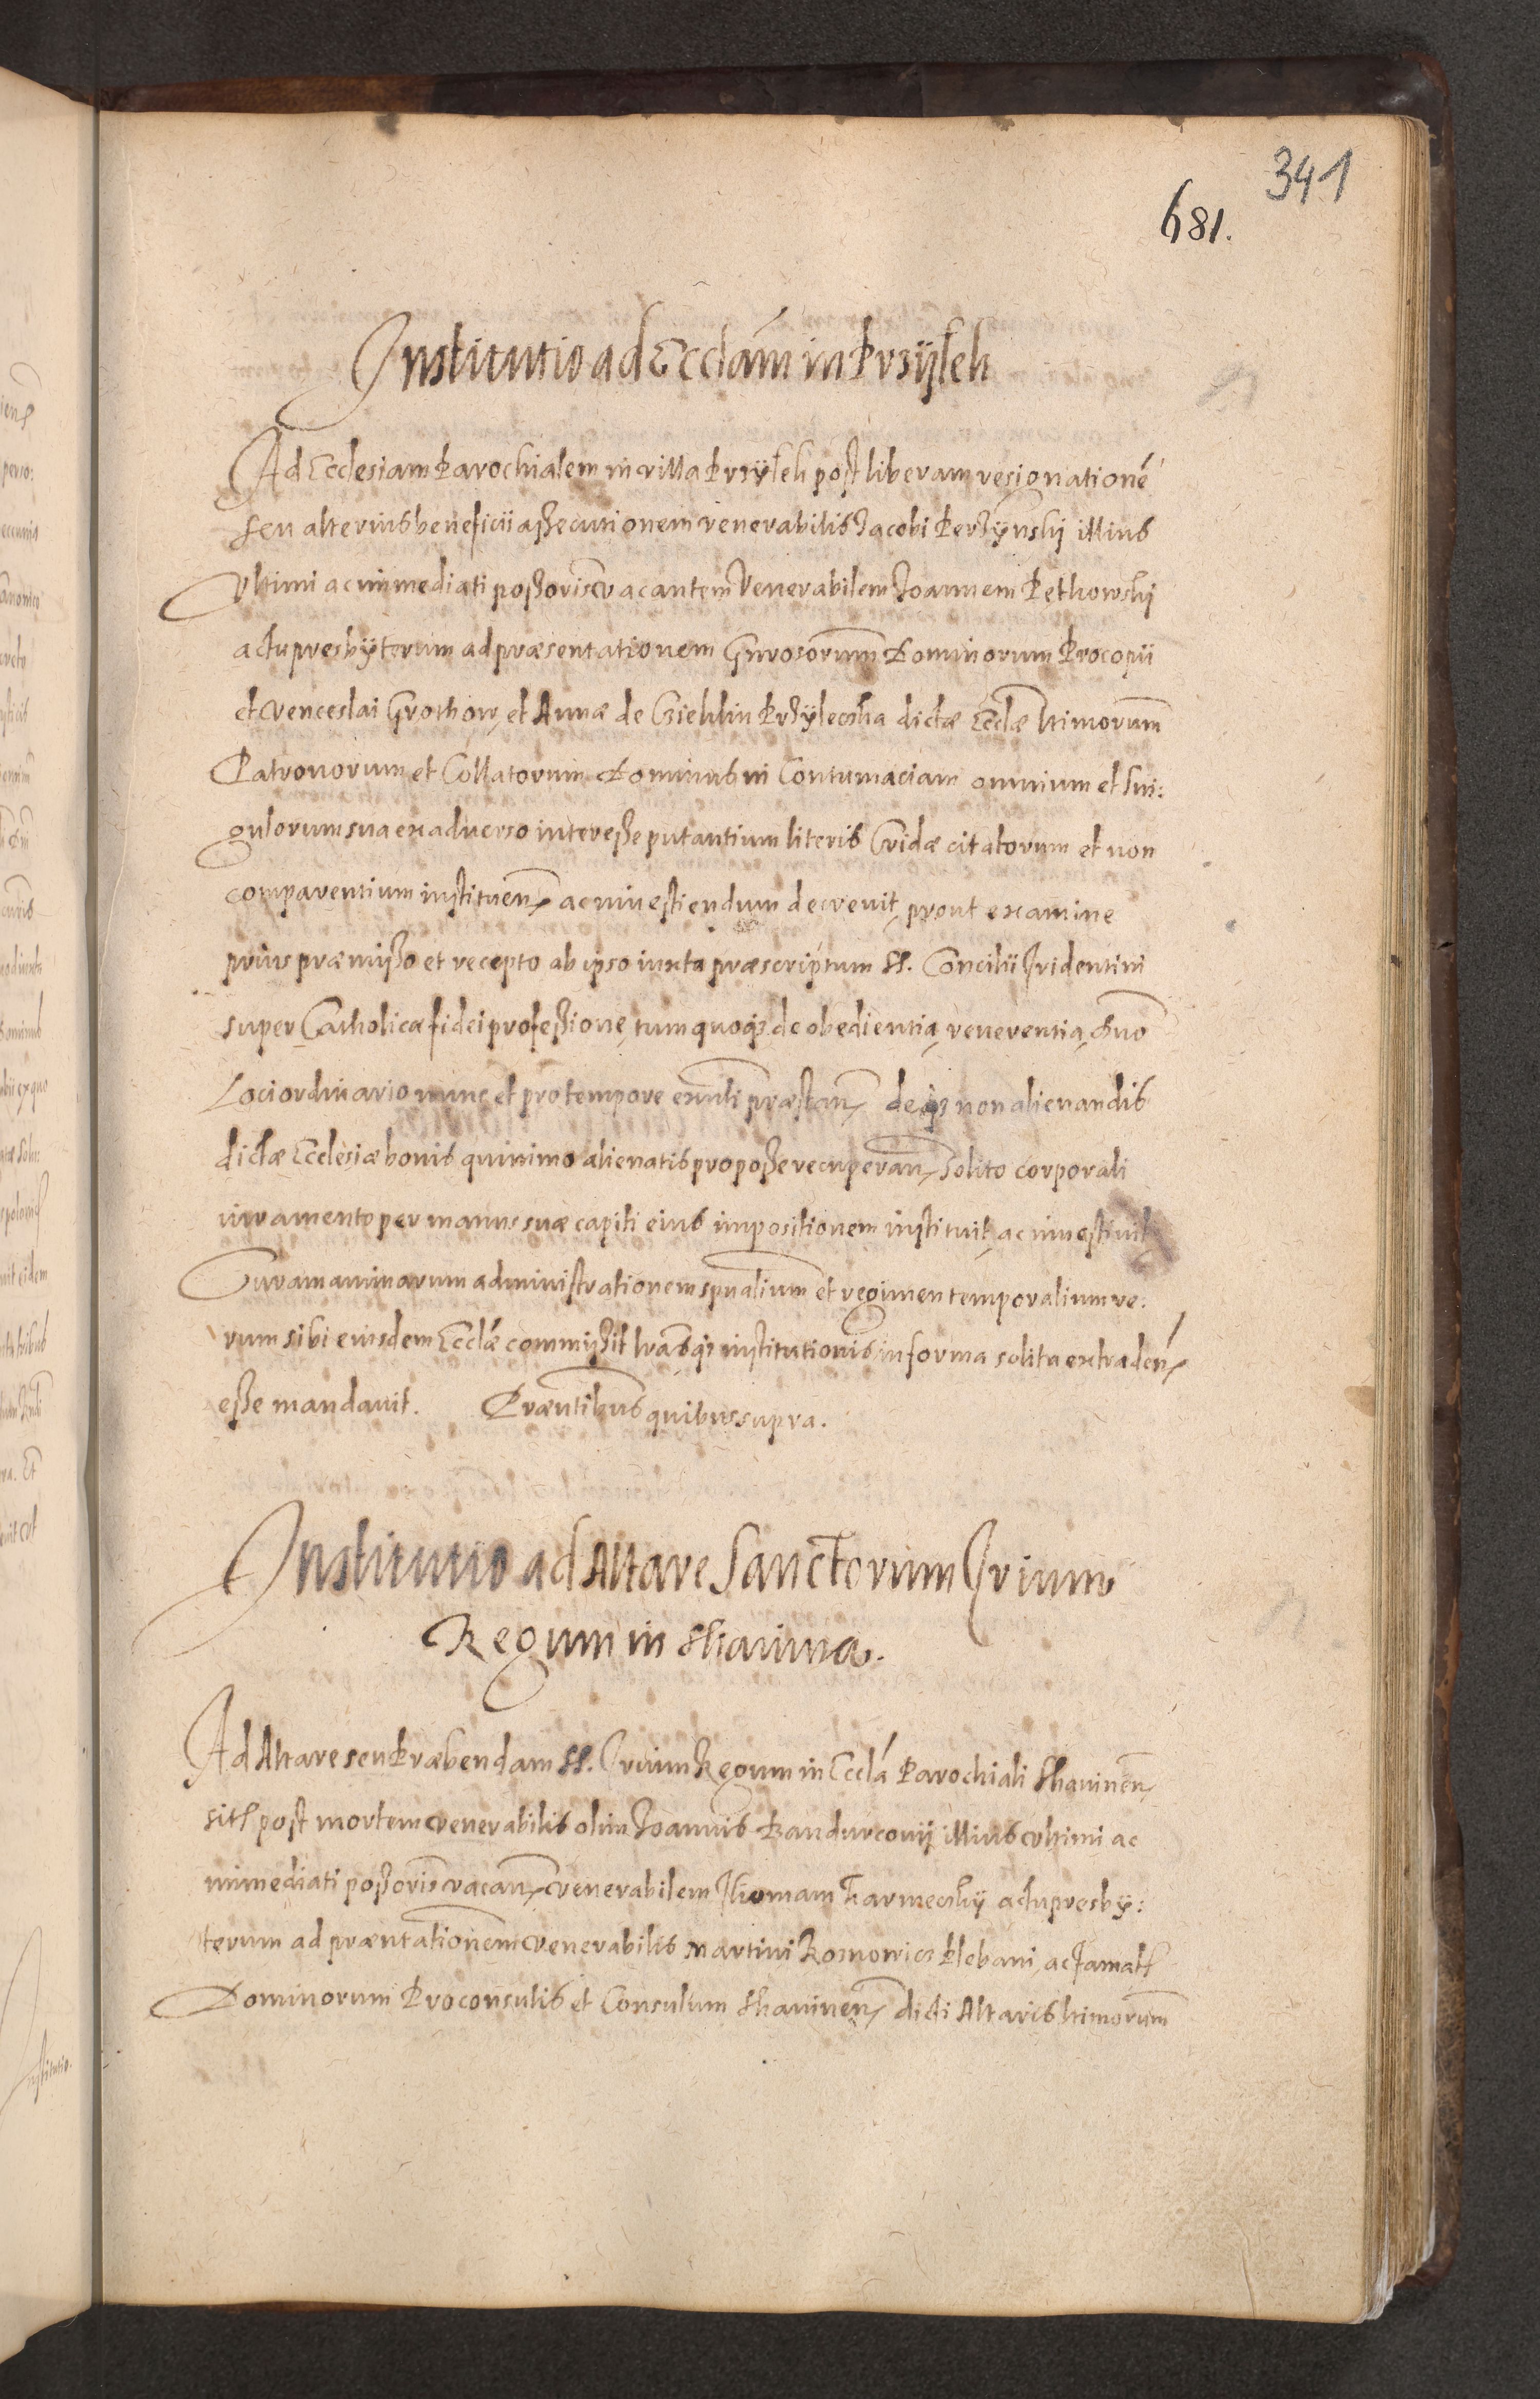 341
681.
Institutio ad Ecclám in Przÿlek
Ad Ecclesiam Parochialem in villa Przÿlek post liberam resignationẽ
seu alterius beneficii aßecutionem venerabilis Jacobi illius
Vltimi ac immediati poßoris vacantem Venerabilem Joannem Pethowskj
actu presbÿterum ad præsentationem Gnrosorum Dominorum Procopii
et Venceslai Grothow, et Annæ de Przÿlecska dictæ Ecclæ ltimorum
Patronorum et Collatorum Dominus in Contumaciam omnium et sin:
gulorum sua ex aduerso intereße putantium literis Cridæ citatorum et non
comparentium instituen ac inuestiendum decreuit, prout examine
prius præmißo et recepto ab ipso iuxta præscriptum SS. Concilii Tridentini
super Catholicæ fidei profeßione, tum quoq; de obedientia, reuerentia, Dno
Loci ordinario nunc et pro tempore exnti præstan deq; non alienandis
dictæ Ecclesiæ bonis quinimo alienatis pro poße recuperan solito corporali
iuramento per manus suæ capiti eius impositionem instituit, ac inuestiuit,
Curam animarum administrationem spualium et regimen temporalium re:
rum sibi eiusdem Ecclæ commißit lrasq; institutionis in forma solita extraden
eße mandauit. Præntibus quibus supra.
Institutio ad Altare Sanctorum Trium
Regum in Skauina.
Ad Altare seu Præbendam SS. Trium Regum in Ecclá Parochiali Skauinen
sit post mortem venerabilis olim Joannis Bandurconij illius vltimi ac
immediati poßoris vacan venerabilem Thomam Tarnecskij actu presbÿ:
terum ad præntationem venerabilis Martini Kosnowicz Plebani, ac famat
Dominorum Proconsulis et Consulum Skauinen dicti Altaris ltimorum